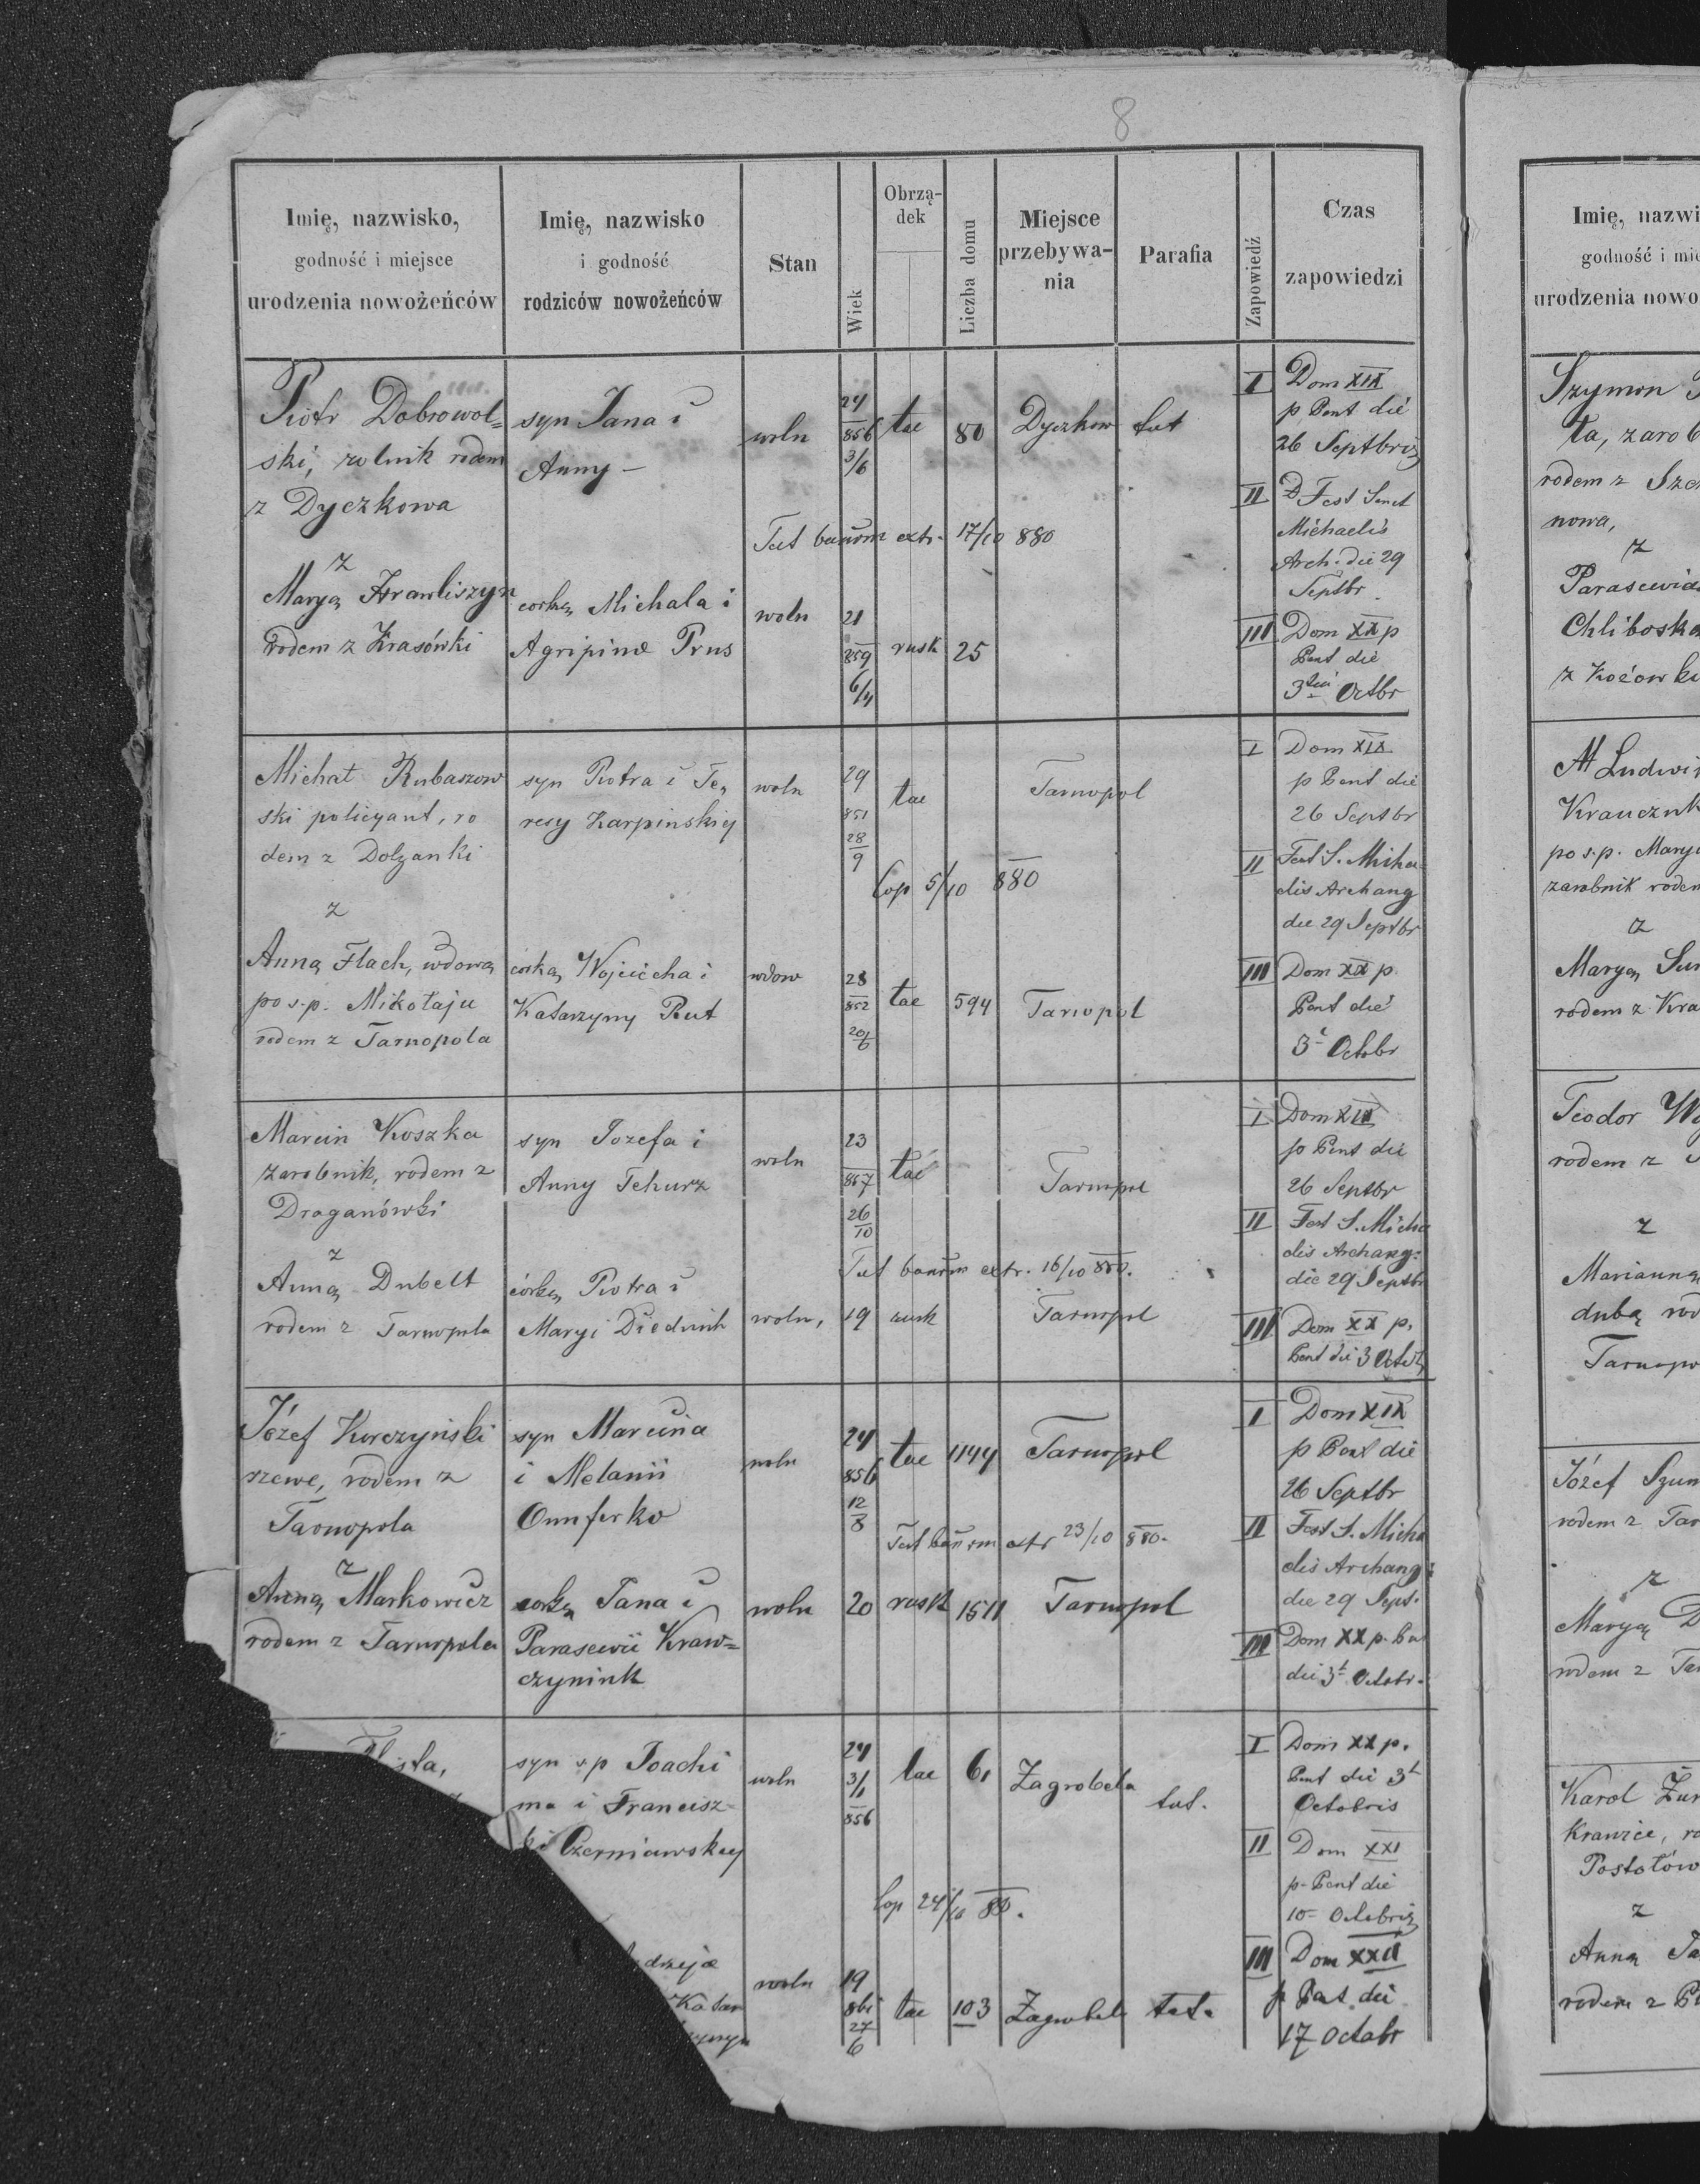 8
Imię, nazwisko,
godność i miejsce
urodzenia nowożeńców
Imię, nazwisko
i godność
rodziców nowożeńców
Stan
Wiek
Obrzą-
dek
Liczba domu
Miejsce
przebywa-
nia
Parafia
Zapowiedź
Czas
zapowiedzi
Piotr Dobrowol=
ski, rolnik rodem
z Dyczkowa
syn Jana i
Anny -
woln
24
856
3/6
lac
80
Dyczkow
tut
I Dom XIX
p Pent die
26 Septbris
II D Fest Sanct
Michaelis
Arch. die 29
Septbr.
Tut bannm extr. 17/10 880
z
Maryą
rodem z Krasówki
corką Michala i
Agripine Prus
woln
21
859
6/4
rusk
25
III Dom XX p
Pent die
3tia Octbr
Michał Rubaszow
ski policyant, ro
dem z Dolzanki
syn Piotra i Te,
resy Karpinskiej
woln
29
851
28
9
lac
Tarnopol
I Dom XIX
p Pent die
26 Septbr
II Fest S. Micha-
elis Archang
die 29 Septbr
Cop 5/10 880
z
Anną Flach, wdową
po s.p. Mikołaju
rodem z Tarnopola
corką Wojciecha i
Katarzyny Rut
wdow
28
852
20/6
lac
594
Tarnopol
III Dom XX p.
Pent die
3 Octobr
Marcin Koszka
zarobnik, rodem z
Draganówki
syn Jozefa i
Anny Tchurz
woln
23
857
26
10
lac
Tarnopol
I Dom XIX
p Pent die
26 Septbr
II Fest S. Micha
elis Archang:
die 29 Septbr
Tut bannm extr. 16/10 880.
z
Anną Dubelt
rodem z Tarnopola
córką Piotra i
Maryi Diedunik
woln,
19
rusk
Tarnopol
III Dom XX p.
Pent die 3 Octobr
Józef Korczyński
szewc, rodem z
Tarnopola
syn Marcina
i Melanii
Onuferko
woln
24
856
12
8
lac
1144
Tarnopol
I Dom XIX
p Pent die
26 Septbr
II Fest S. Micha
elis Archang:
die 29 Sept.
Tut bannm extr 23/10 880.
z
Anną Markowicz
rodem z Tarnopola
corką Jana i
Parascewii Kraw=
czyniuk
woln
20
rusk
1511
Tarnopol
III Dom XX p. Pent
die 3 Octobr.
syn s.p Joachi
ma i Francisz-
ki Czerniawskiej
woln
24
3/1
856
lac
61
Zagrobela
tut.
I Dom XX p.
Pent die 3
Octobris
II Dom XXI
p. Pent die
10 Octobris
Cop 24/10 880.
drzeja
Katar
woln
19
861
27
6
lac
103
Zagrobela
tut.
III Dom XXII
p Pent die
17 Octobr
Imię, nazwi
godność i mie
urodzenia nowo
Szymon
ta, zarob
rodem z
nowa,
z
Parascewią
Chliboską
z
Ludwi
Krauczuk
po s.p. Mary
zarobnik rodem
z
Maryą
rodem z Kra
Teodor
rodem z
z
Marianną
dubą rod
Tarnopo
Józef Szum
rodem z Tar
z
Maryą D
rodem z Ta
Karol Żur
Krawiec, ro
Postołów
z
Anną Ja
rodem z